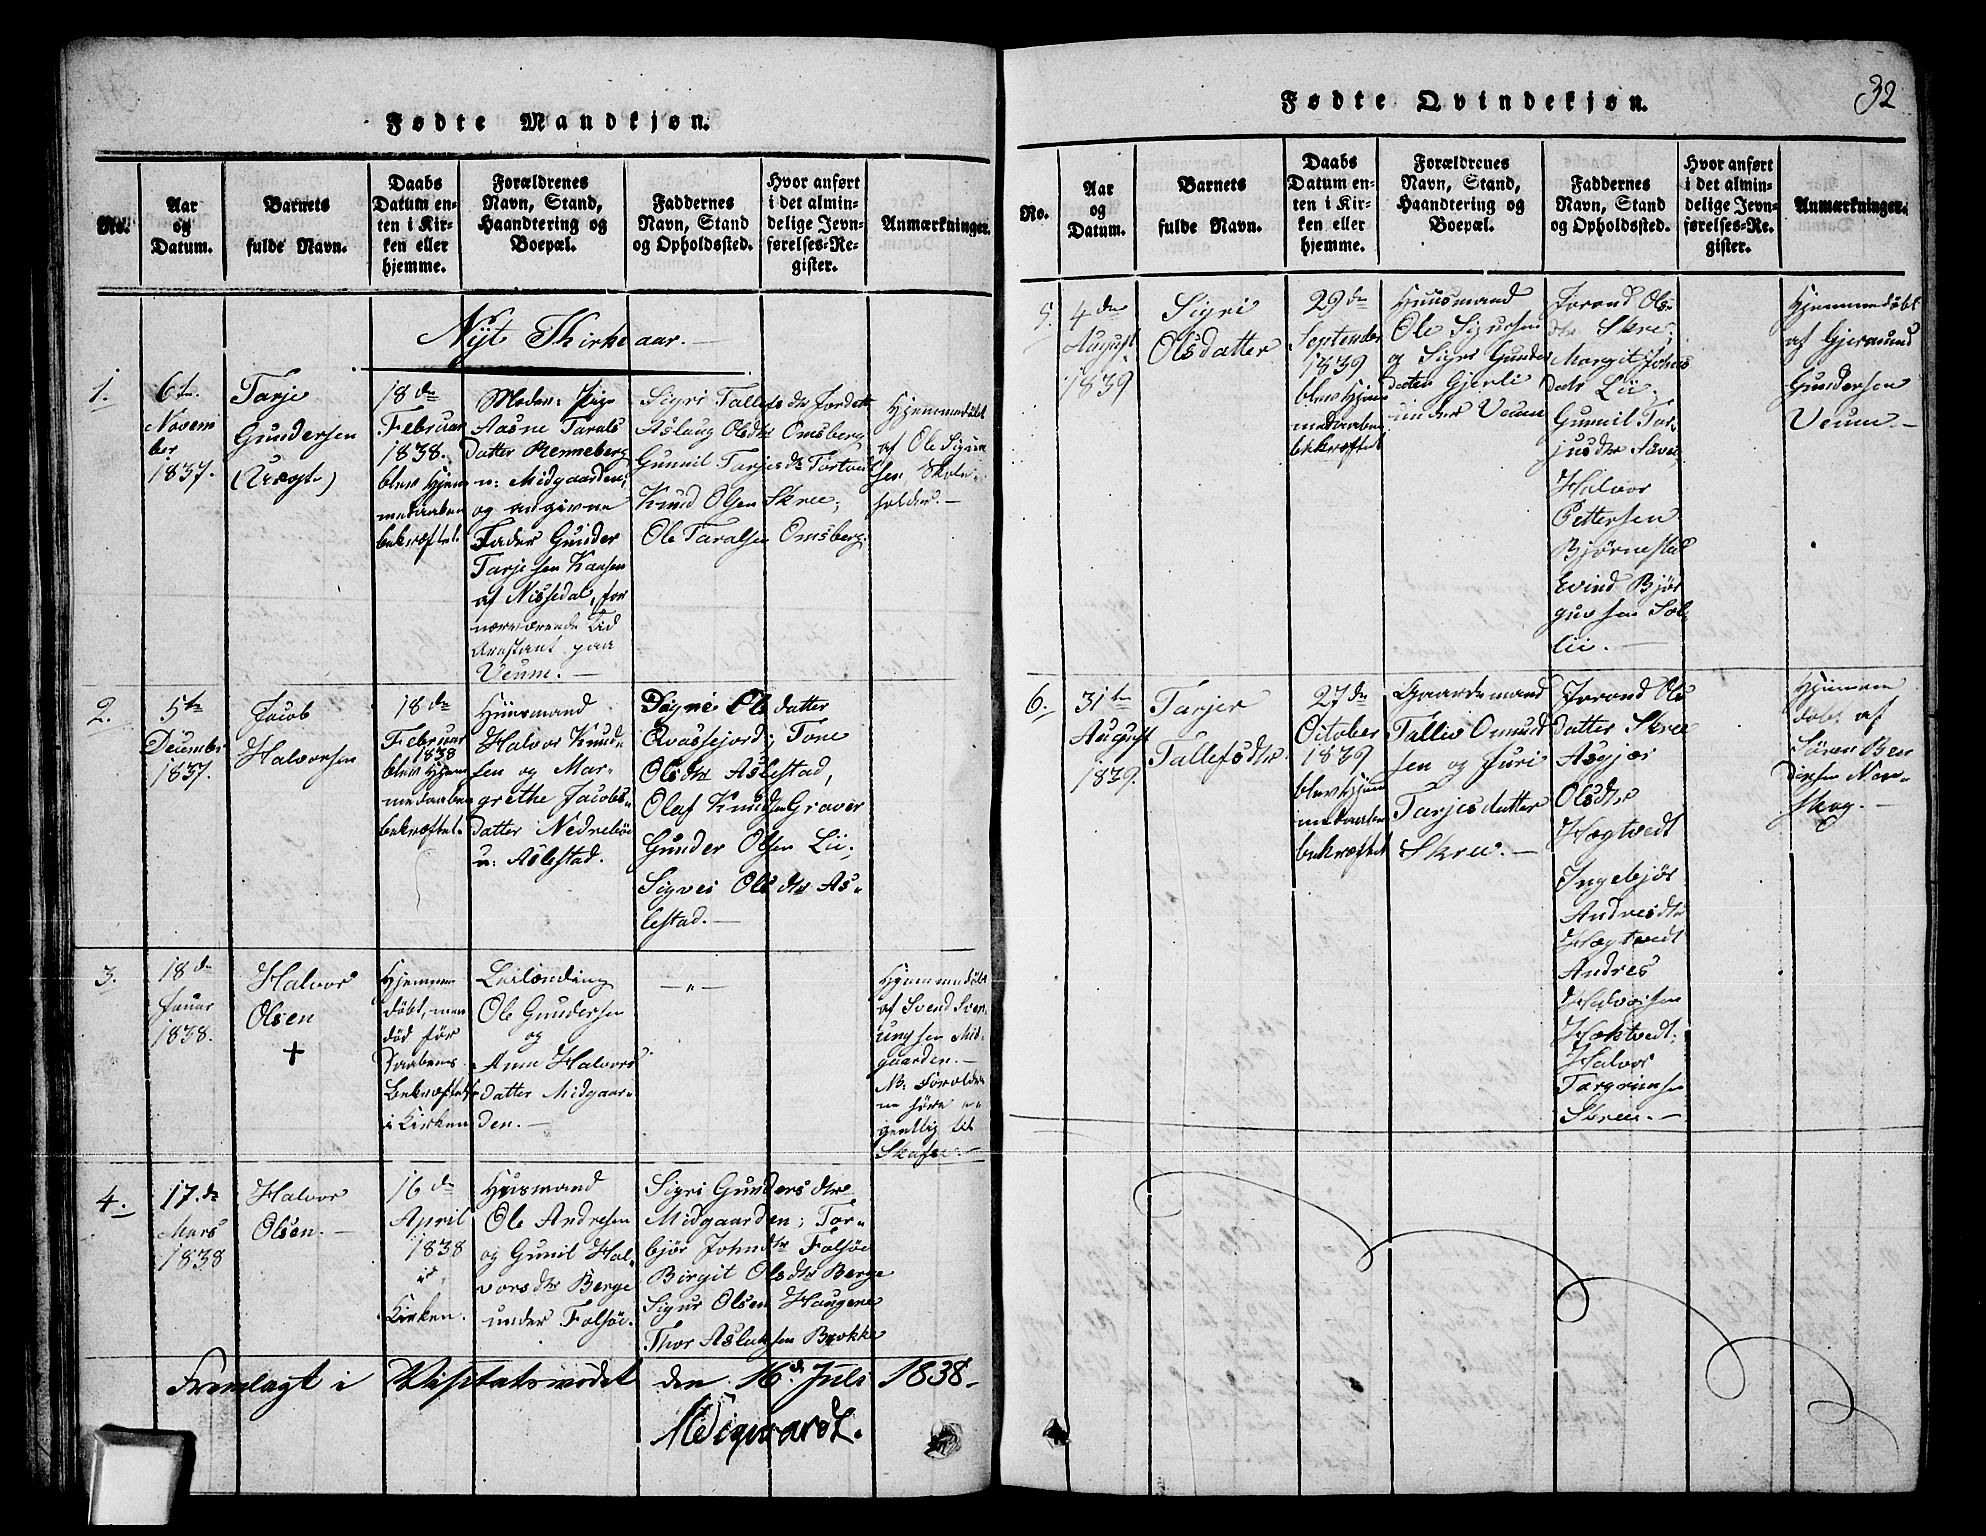 Fødte Mandkjøn.
No.
Aar
og
Datum.
Barnets
fulde Navn.
Daabs
Datum en-
ten i Kir-
ken eller
hjemme.
Forældrenes
Navn, Stand,
Haandtering og
Boepæl.
Faddernes
Navn, Stand
og Opholdssted.
Hvor anført
i det almin-
delige Jevn-
førelses-Re-
gister.
Anmærkninger.
Nyt Kirkeaar.
1.
6te
Novem
ber
1837.
Tarje
Gundersen
(Uægte)
18de
Februar
1838.
blev Hjem
medaaben
bekræftet.
Moder: Pige
Aasne Tarals
datter Renneberg
u: Midgaarden;
og angivne
Fader Gunder
Tarjesen Kaasen
af Nissedal, for
nærværende Tid
Arrestant paa
Veum.
Sigri Tallefsdtr Jordet
Aslaug Olsdtr Omsberg
Gunnil Tarjesdtr
Knud Olsen Skree;
Ole Taralsen Omsberg
Hjemmedøbt
af Ole Sigur
sen Skole-
holder.
2.
5te
Decembr
1837.
Jacob
Halvorsen
18de
Februar
1838
blev Hjem
medaaben
bekræftet.
Huusmand
Halvor Knud
sen og Mar-
grethe Jacobs-
datter Nedrebøe
u: Aslestad.
Signe Olsdatter
Qvassejord; Tone
Olsdtr Aslestad,
Olaf Knudsen Graver
Gunder Olsen Lii;
Sigvei Olsdtr As-
lestad.
3.
18de
Januar
1838.
Halvor
Olsen
+
Hjemme
døbt, men
død før
Daabens
Bekræftelse
i Kirken
Leilænding
Ole Gundersen
og
Anne Halvors
datter Midgaar-
den.
— " —
Hjemmedøbt
af Svend Sven
ungsen Mid-
gaarden.
NB: Forældre
ne høre e-
gentlig til
Skafse.
4.
17de
Mars
1838
Halvor
Olsen.
16de
April
1838
i
Kirken.
Huusmand
Ole Andresen
og Gunil Hal-
vorsdtr Berge
under Folsøe.
Sigri Gundersdtr
Midgaarden; Tor-
bjør Johndtr Folsøe
Birgit Olsdtr Berge
Sigur Olsen Haugene
Thor Aslaksen Brokke
Fremlagt i Visitatsmødet den 16de Juli 1838.
MSigwardt.
Fødte Qvindekjøn.
32
No.
Aar
og
Datum.
Barnets
fulde Navn.
Daabs
Datum en-
ten i Kir-
ken eller
hjemme.
Forældrenes
Navn, Stand,
Haandtering og
Boepæl.
Faddernes
Navn, Stand
og Opholdssted.
Hvor anført
i det almin-
delige Jevn-
førelses-Re-
gister.
Anmærkninger.
5.
4de
August
1839
Sigri
Olsdatter
29de
September
1839
blev Hjem
medaaben
bekræftet
Huusmand
Ole Sigursen
og Sigri Gunder
datter Gjerli
under Veum
Jorand Ols
dtr Skre;
Margit Johns
datr Lii;
Gunnil Tar-
jusdtr
Halvor
Pettersen
Bjørnestad
Evind Bjør
guvsen Sol-
lii.
Hjemmedøbt
af Gjermund
Gundersen
Veum.
6.
31te
August
1839.
Tarjer
Tallefsdtr
27de
October
1839
blev Hjem
medaaben
bekræftet
Gaardsmand
Tallev Omund
sen og Juri
Tarjesdatter
Skree.
Jorand Ols
datter Skree
Asgjør
Olsdtr
Høgtvedt
Ingebjør
Andresdtr
Høgtvedt
Andres
Halvorsen
Høktvedt;
Halvor
Torgrimsen
Skree.
Hjemme
døbt af
Søren Ber
Næs-
skog.